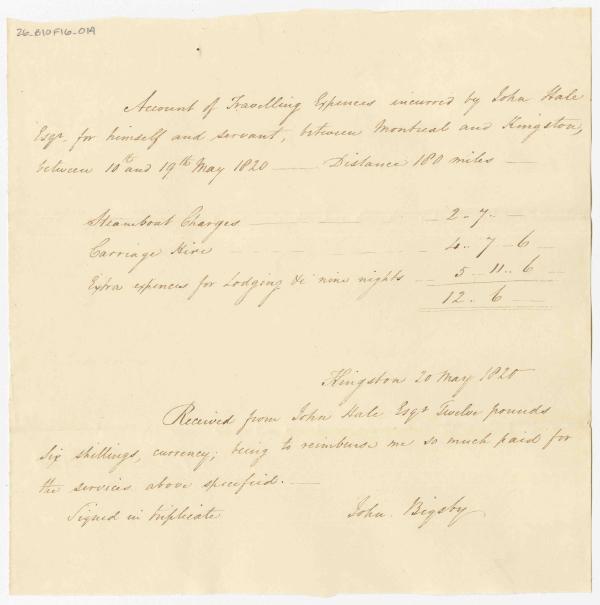 26-B10F16-01A
Account of Travelling Expences incurred by John Hale
Esqr. for himself and servant, between Montreal and Kingston,
between 10th and 19th May 1820 —— Distance 180 miles —
Steamboat Charges — — — — 2 .. 7 .. —
Carriage Hire — — — — 4 .. 7 — 6 —
Extra expences for Lodging &c nine nights — 5 — 11 .. 6 —
12 .. 6 —
Kingston 20 May 1820
Received from John Hale Esqr Twelve pounds
six shillings, currency; being to reimburse me so much paid for
the services above specified. —
Signed in triplicate John Bigsby